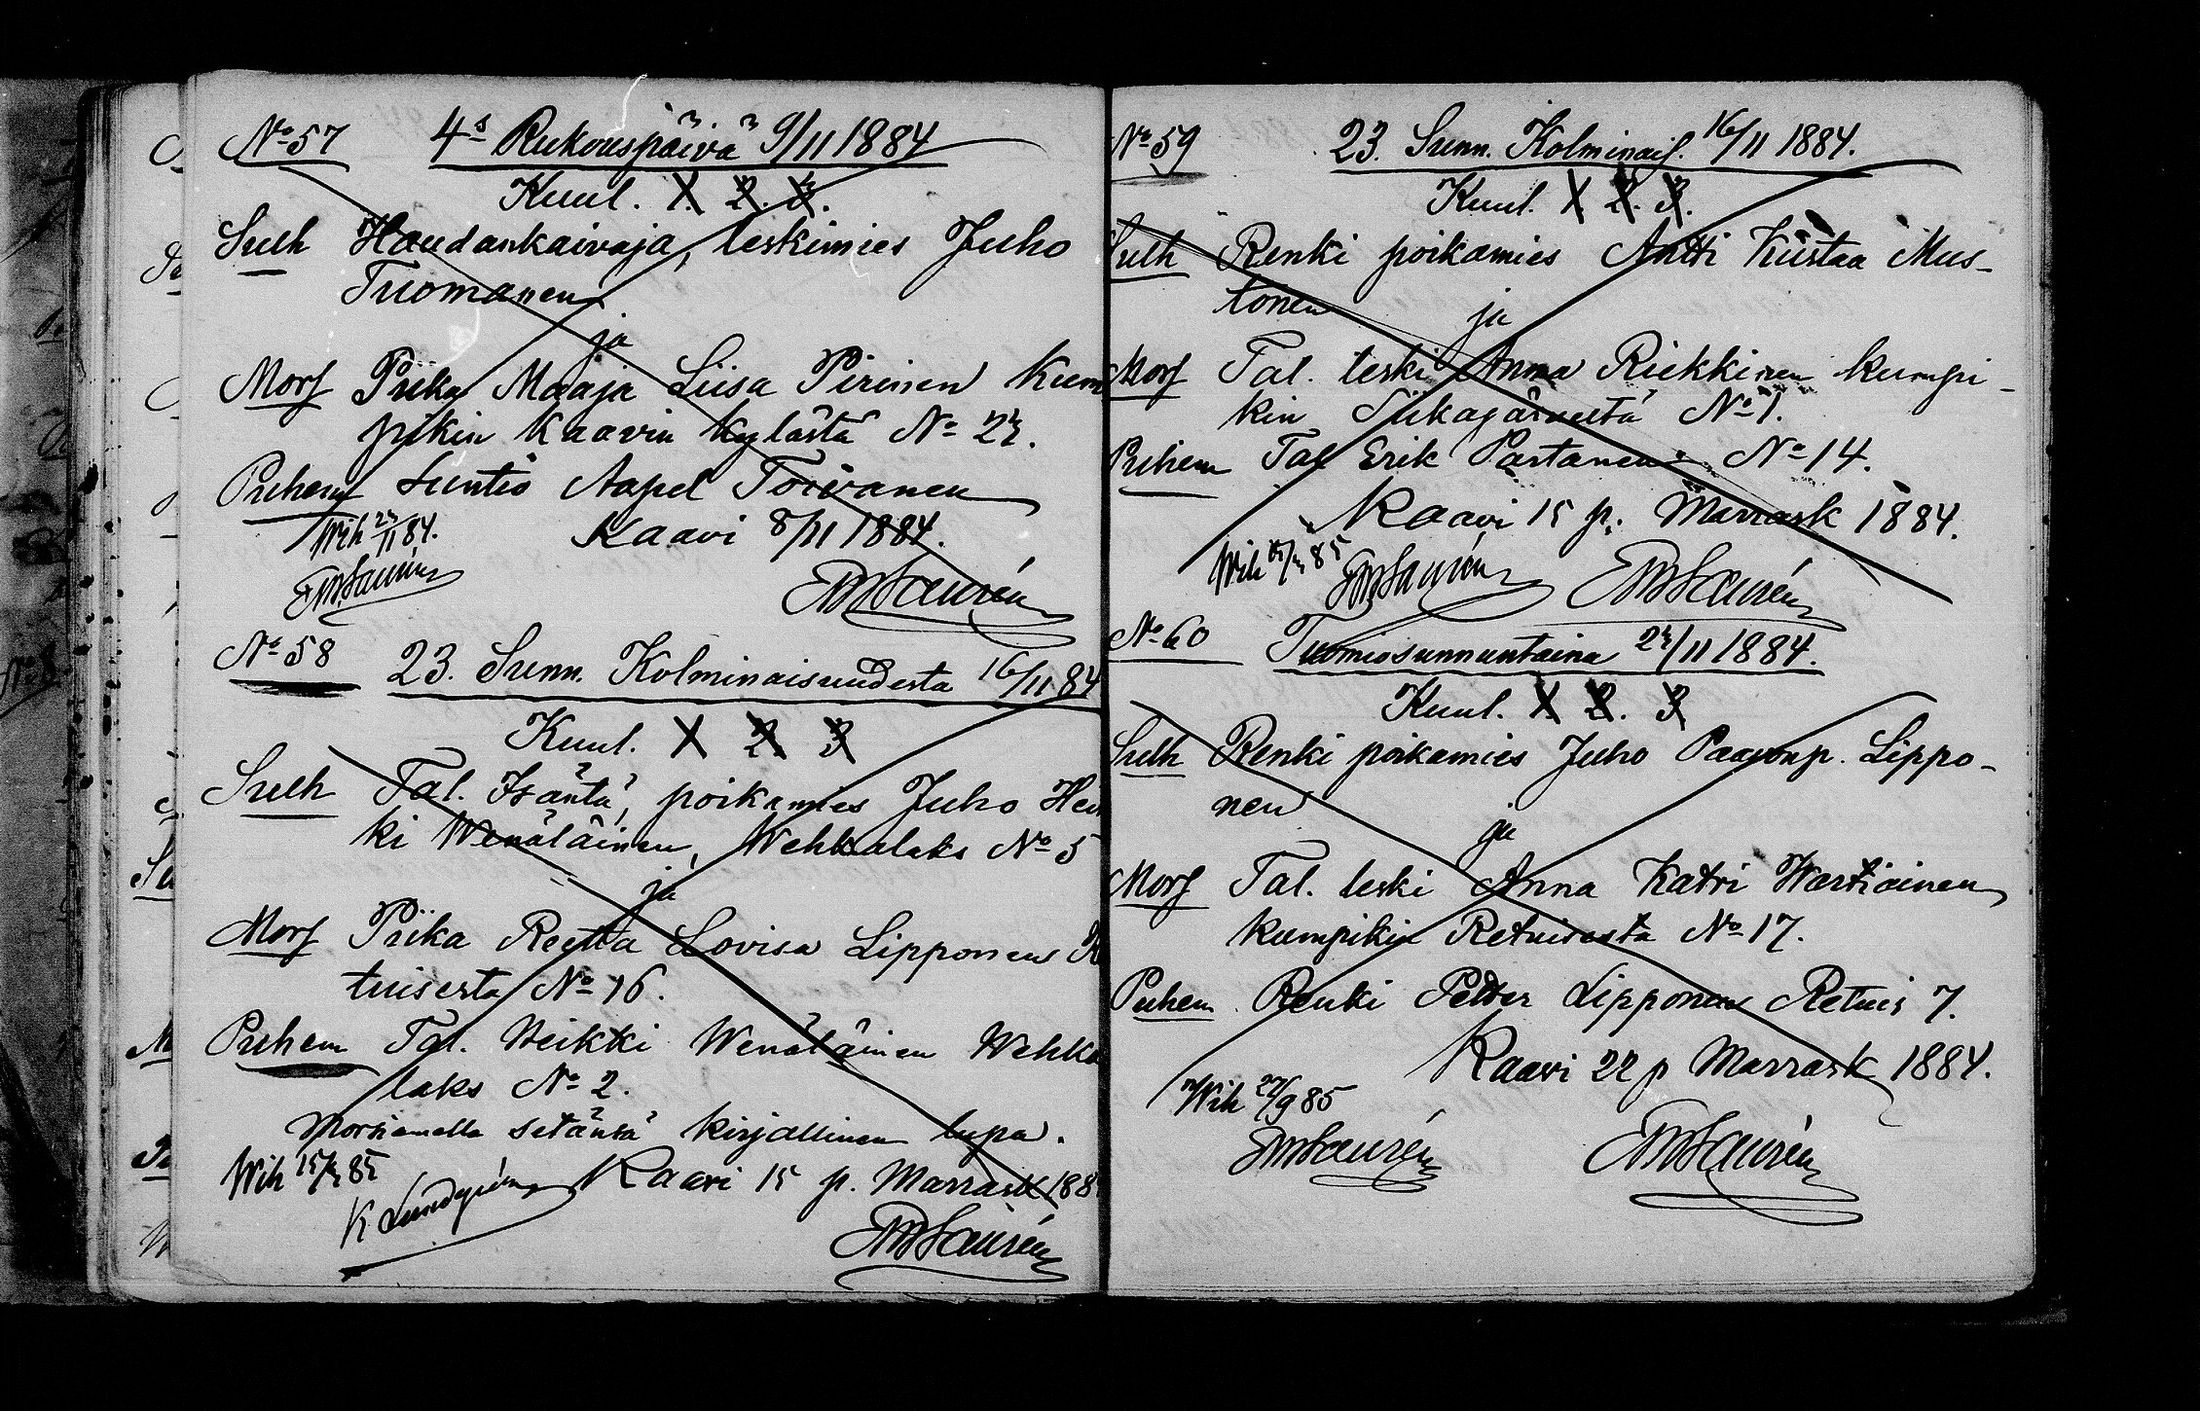 No 57 4s Rukouspäivä 9/11 1884
Kuul. 1. 2. 3.
Sulh Haudankaivaja, leskimies Juho
Tuomanen
ja
Mors Piika Maaja Liisa Pirinen kum
pikin Kaavin kylästä No 23.
Puhem Suntio Aapel Toivanen
Kaavi 8/11 1884.
Wih 23/11 84.
EMLaurén
EMLaurén
No 58 23. Sunn. Kolminaisuudesta 16/11 84
Kuul. 1 2 3
Sulh Tal. Isäntä, poikamies Juho Hei
ki Wenäläinen, Wehkalaks No 5
ja
Mors Piika Reetta Lovisa Lipponen
tuisesta No 16.
Puhem Tal. Heikki Wenäläinen Wehka
laks No 2.
Morsiamella setänsä kirjallinen lupa.
Wih 85
K Lundgrén
Kaavi 15 p. Marrask 188
EMLaurén
No 59 23. Sunn. Kolminais. 16/11 1884.
Kuul. 1 2. 3.
Sulh Renki poikamies Antti Kustaa Mus-
tonen
ja
Mors Tal. leski Anna Riekkinen kumpi-
kin Siikajärveltä No 1.
Puhem Tal Erik Partanen No 14.
Kaavi 15 p. Marrask 1884.
Wih 85
EMLaurén
EMLaurén
No 60 Tuomiosunnuntaina 23/11 1884.
Kuul. 1 2. 3
Sulh Renki poikamies Juho Paavonp. Lippo-
nen
ja
Mors Tal. leski Anna Katri Wartiainen
kumpikin Retuisesta No 17.
Puhem Renki Petter Lipponen Retuis 7.
Kaavi 22 p Marrask 1884.
Wih 27/9 85
EMLaurén
EMLaurén